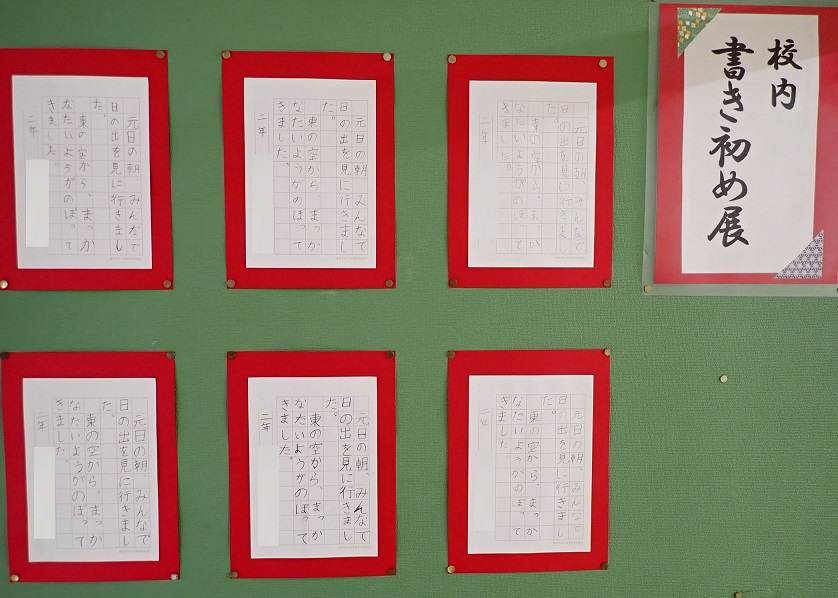 校内
書き初め展
元日の朝、みんなで
日の出を見に行きまし
た。
東の空から、まっか
なたいようがのぼって
きました。
二年
元日の朝、みんなで
日の出を見に行きまし
た。
東の空から、まっか
なたいようがのぼって
きました。
二年
元日の朝、みんなで
日の出を見に行きまし
た。
東の空から、まっか
なたいようがのぼって
きました。
二年
元日の朝、みんなで
日の出を見に行きまし
た。
東の空から、まっか
なたいようがのぼって
きました
二年
元日の朝、みんなで
日の出を見に行きまし
た。
東の空から、まっか
なたいようがのぼって
きました。
二年
元日の朝、みんなで
日の出を見に行きまし
た。
東の空から、まっか
なたいようがのぼって
きました。
二年